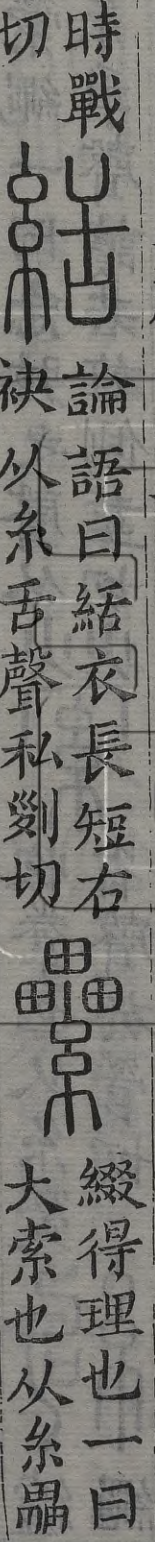 時戰
切
絬
論語曰絬衣長短右
袂从糸舌聲私𠛱切
纍
綴得理也一曰
大索也从糸畾